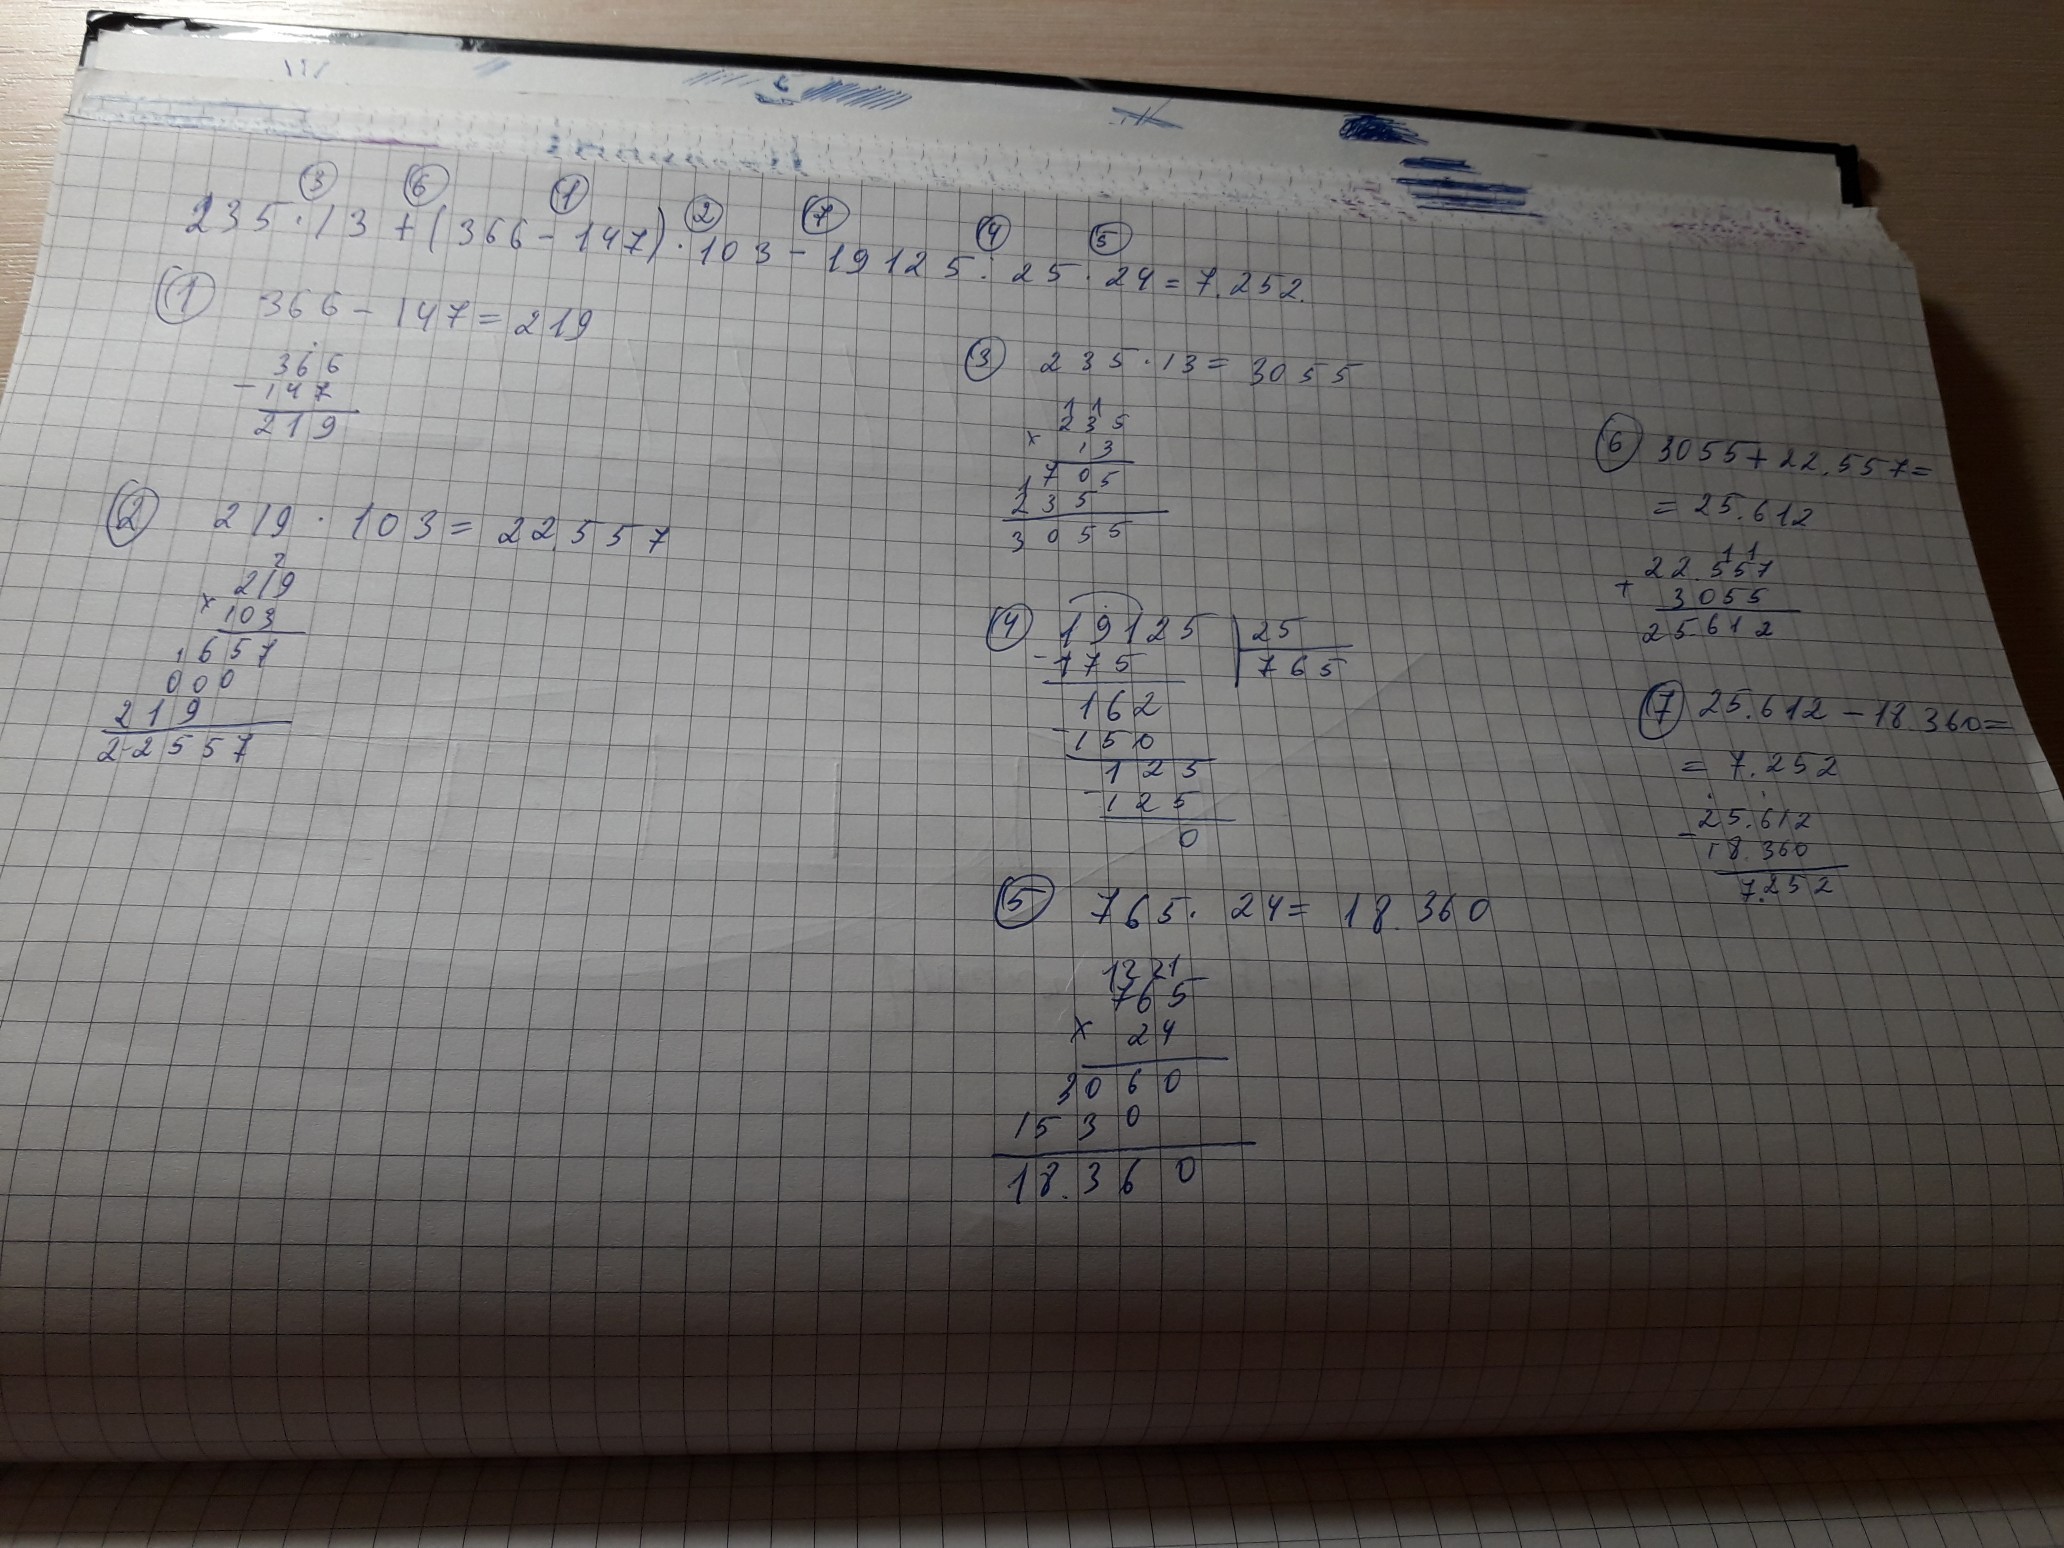 3 6 1 2 7 4 5
235·13+(366-147)·103-19125:25·24=7.252.
1 366-147=219
366
-147
219
2 219·103=22.557
2
219
×103
1657
000
219
22557
3 235·13=3055
1 1
235
× 13
1705
235
3055
4 19125 25
-175 765
162
-150
125
-125
0
5 765·24=18.360
13 21
765
× 24
3060
1530
18.360
6 3055+22.557=
=25.612
1 1
22.557
+ 3055
25.612
7 25.612-18.360=
=7.252
25.612
-18.360
7.252